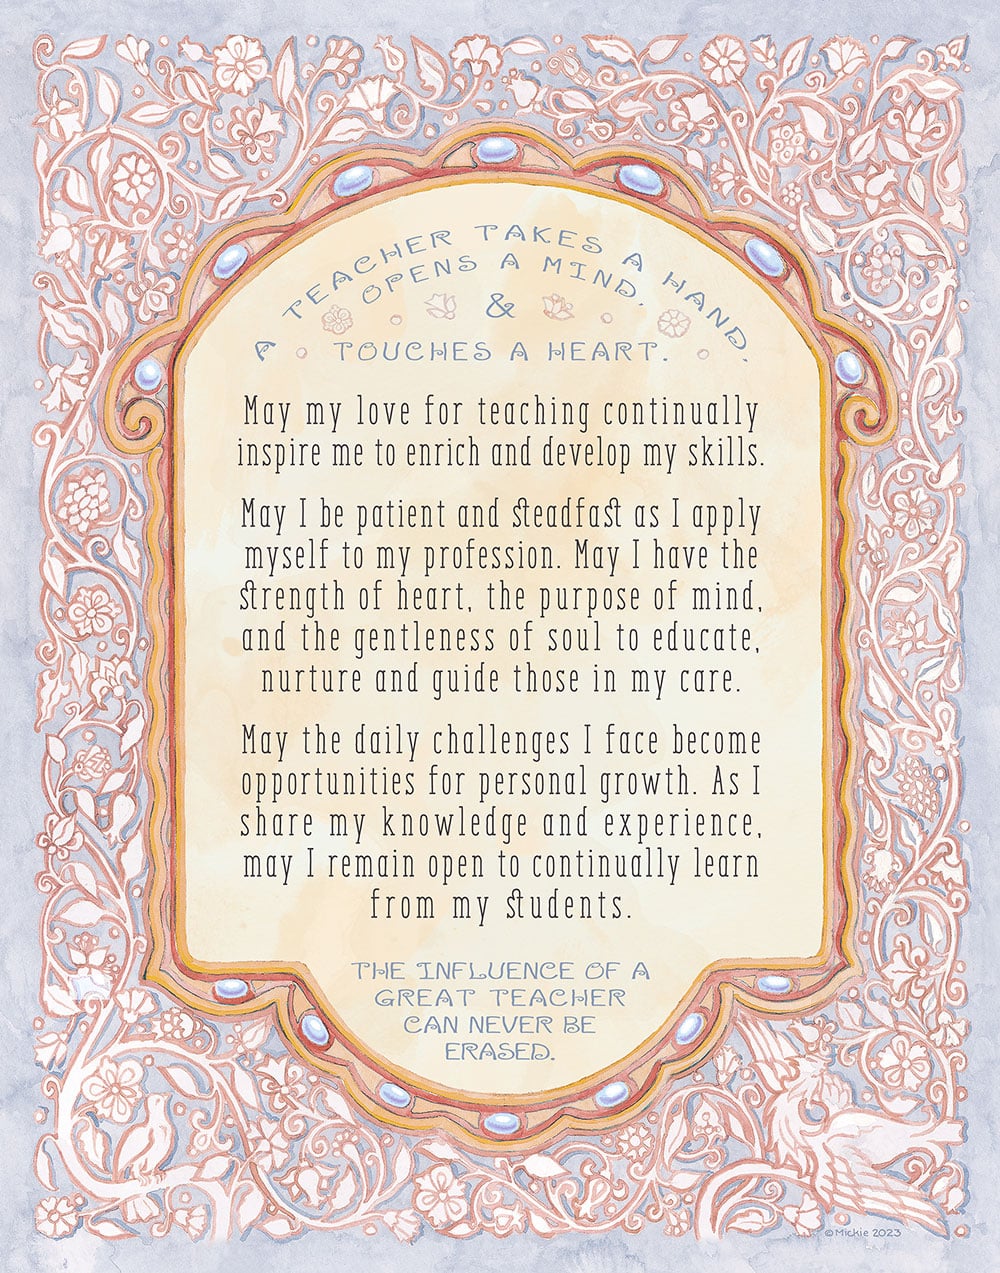 A TEACHER TAKES A HAND,
OPENS A MIND,
&
TOUCHES A HEART.
May my love for teaching continually
inspire me to enrich and develop my skills.
May I be patient and steadfast as I apply
myself to my profession. May I have the
strength of heart, the purpose of mind,
and the gentleness of soul to educate,
nurture and guide those in my care.
May the daily challenges I face become
opportunities for personal growth. As I
share my knowledge and experience,
may I remain open to continually learn
from my students.
THE INFLUENCE OF A
GREAT TEACHER
CAN NEVER BE
ERASED.
©Mickie 2023